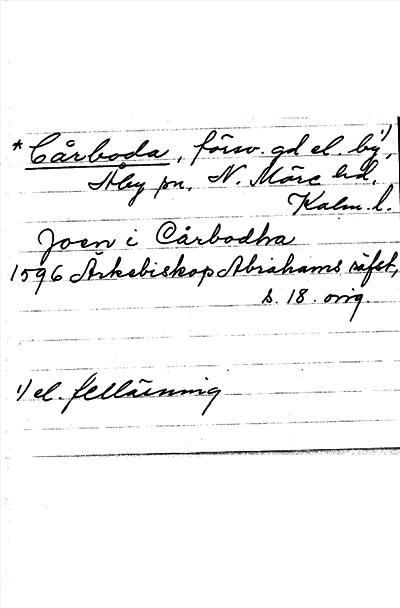 * Cårboda, försv. gd el. by¹),
Åby sn, N. Möre hd,
Kalm. l.
Joen i Cårbodha
1596 Ärkebiskop Abrahams räfst,
s. 18. orig.
¹) el. felläsning